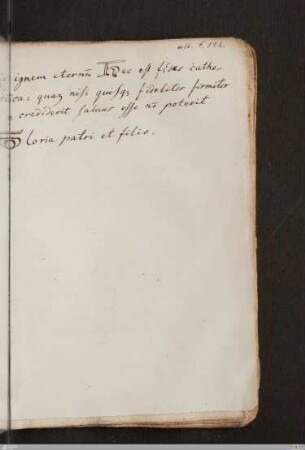 ignem eternū Hec est fides catho
lica: quaꝫ nisi quisqꝫ fideliter firmiter
crediderit saluus esse nō poterit
Gloria patri et filio.